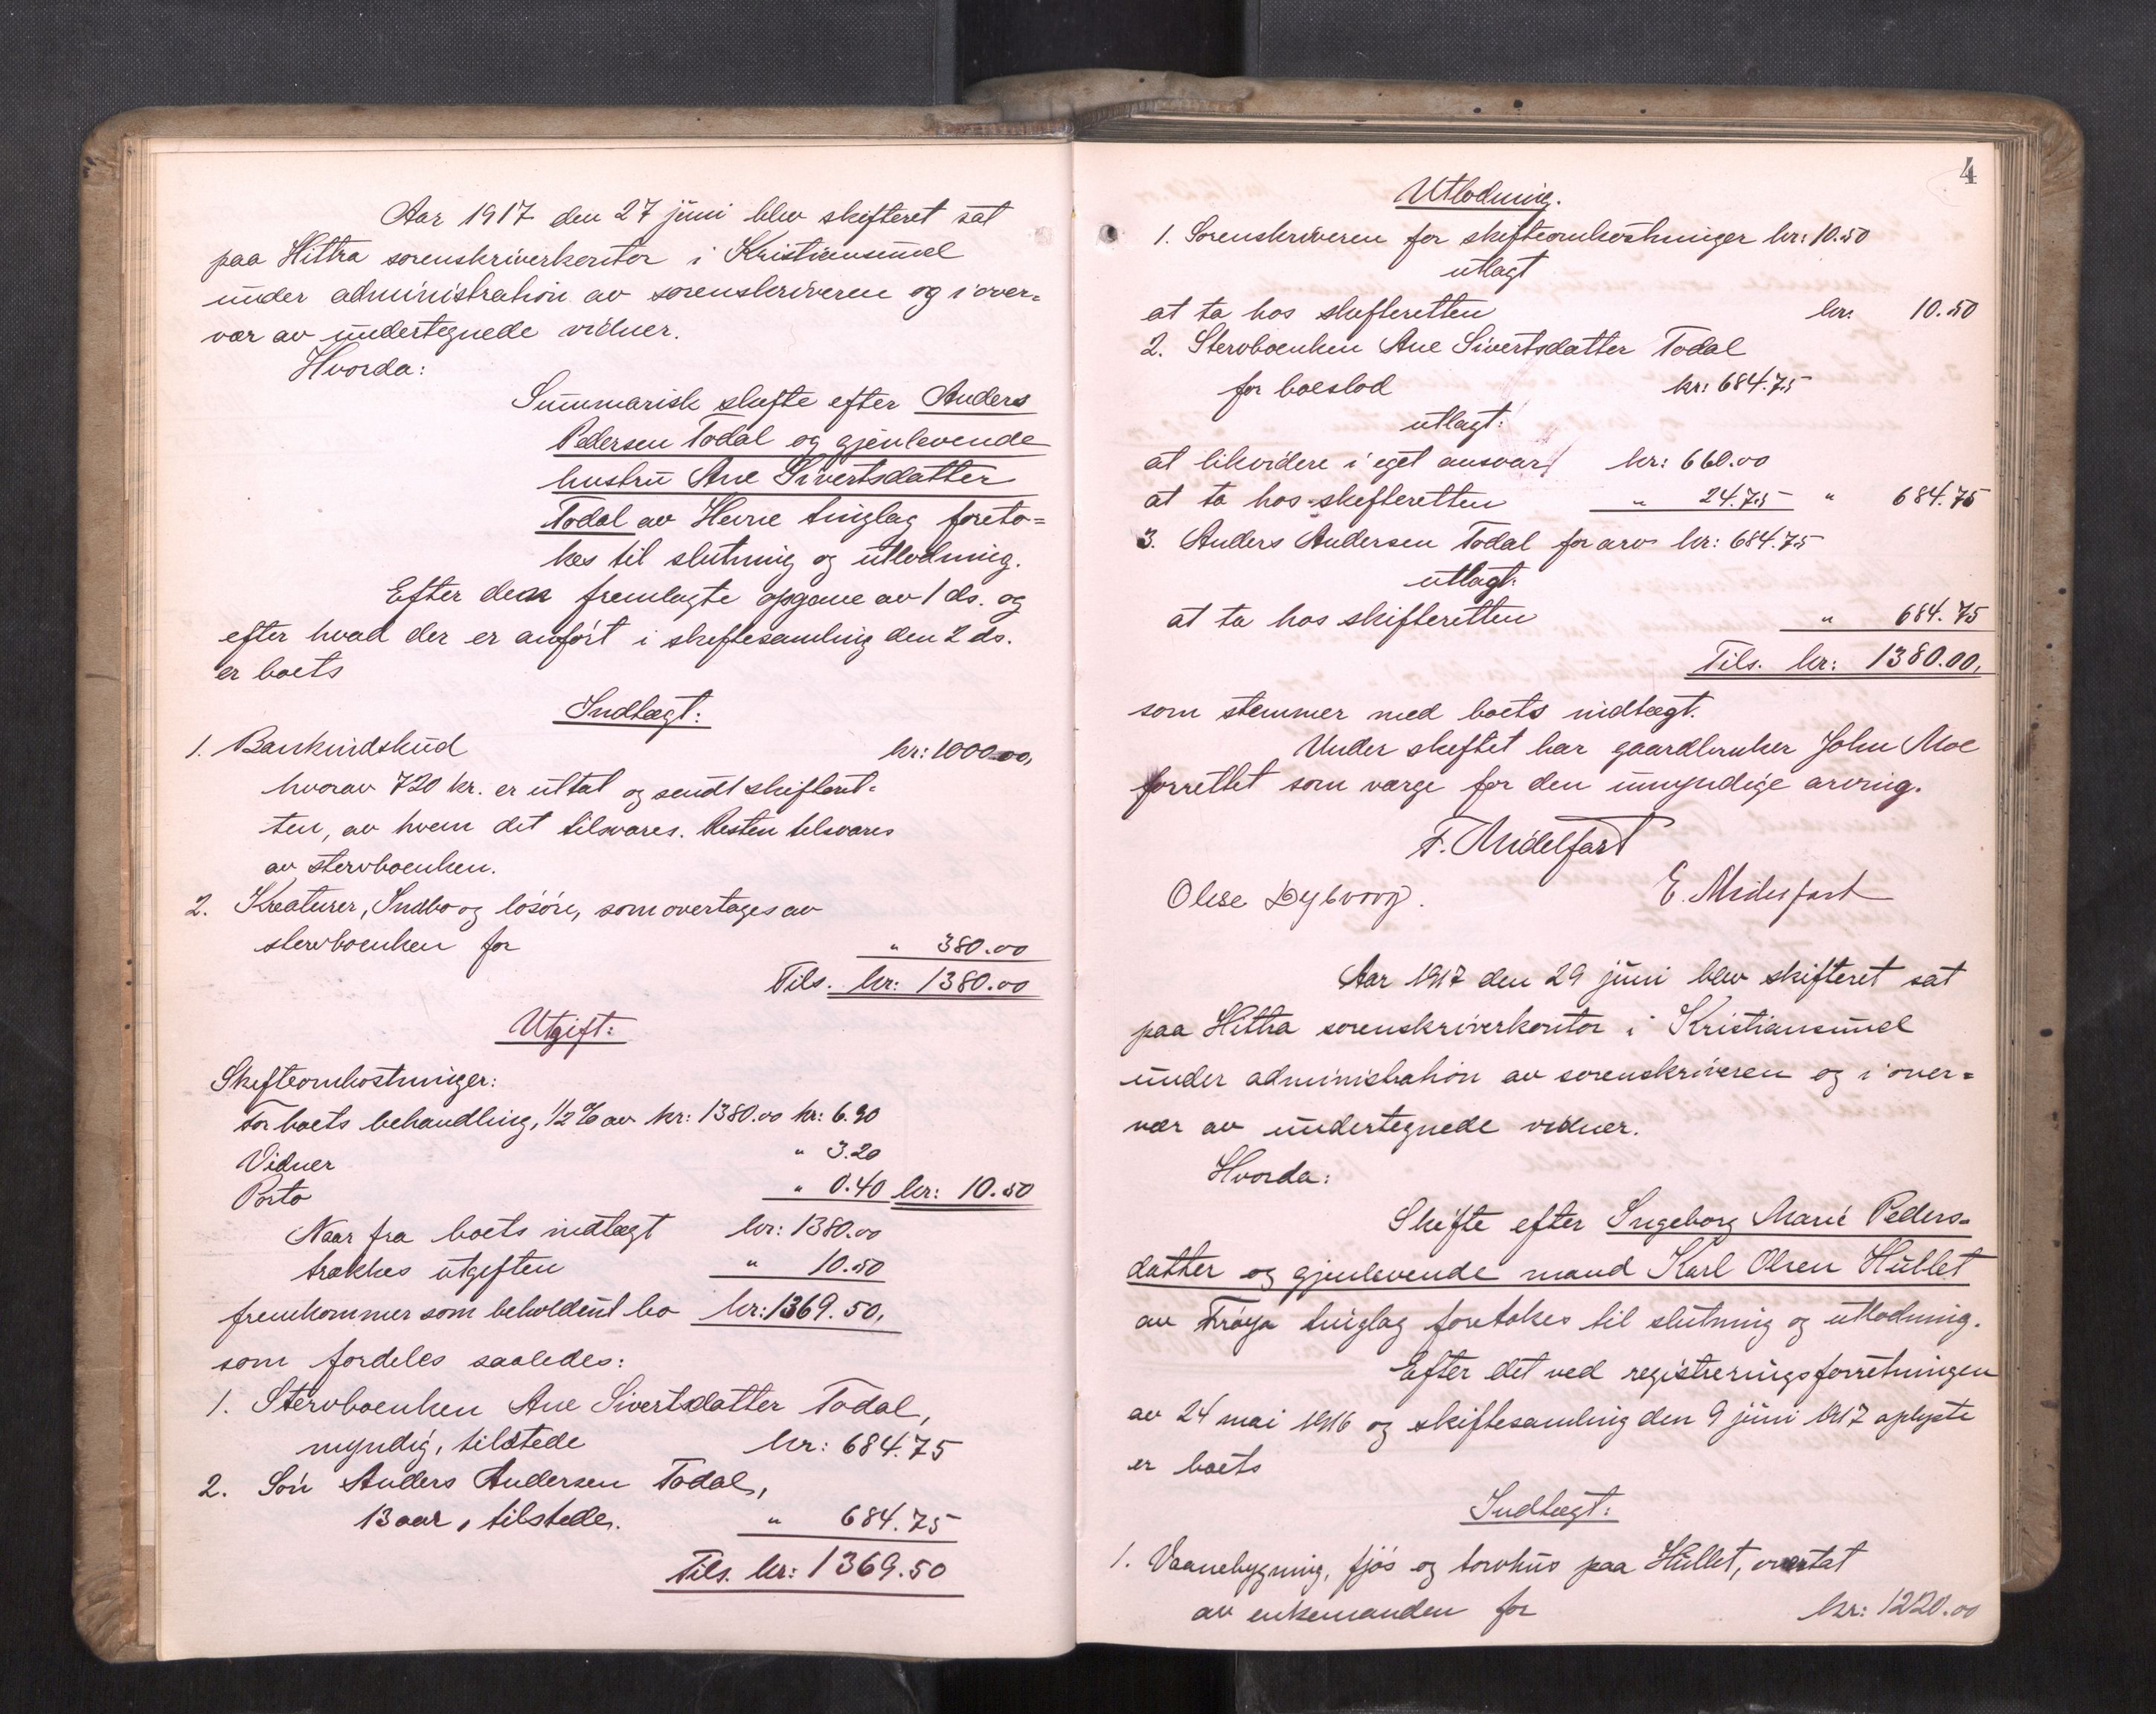 Aar 1917 den 27 juni blev skifteret sat
paa Hittra sorenskriverkontor i Kristiansund
under administration av sorenskriveren og i over=
vær av undertegnede vidner.
Hvorda:
Summarisk skifte efter Anders
Pedersen Todal og gjenlevende
hustru Ane Sivertsdatter
Todal av Hevne tinglag foreto=
kes til slutning og utlodning.
Efter den fremlagte opgave av 1 ds. og
efter hvad der er anført i skiftesamling den 2 ds.
er boets
Indtægt:
1. Bankindskud kr: 1000.00,
hvorav 720 kr. er uttat og sendt skifteret=
ten, av hvem det tilsvares. Resten tilsvares
av stervboenken.
2. Kreaturer, Indbo og løsøre, som overtages av
stervboenken for " 380.00
Tils. kr: 1380.00
Utgift:
Skifteomkostninger:
For boets behandling, 1/2 % av kr: 1380.00 kr: 6.90
Vidner " 3.20
Porto " 0.40 kr: 10.50
Naar fra boets indtægt kr: 1380.00
trækkes utgiften " 10.50
fremkommer som beholdent bo kr: 1369.50,
som fordeles saaledes:
1. Stervboenken Ane Sivertsdatter Todal,
myndig, tilstede kr: 684.75
2. Søn Anders Andersen Todal,
13 aar, tilstede. " 684.75
Tils. kr: 1369.50
4
Utlodning.
1. Sorenskriveren for skifteomkostninger kr: 10.50
utlagt
at ta hos skifteretten kr. 10.50
2. Stervboenken Ane Sivertsdatter Todal
for boeslod kr: 684.75
utlagt:
at likvidere i eget ansvar kr: 660.00
at ta hos skifteretten " 24.75 " 684.75
3. Anders Andersen Todal for arv kr: 684.75
utlagt:
at ta hos skifteretten " 684.75
Tils. kr: 1380.00,
som stemmer med boets indtægt.
Under skiftet har gaardbruker John Moe
forrettet som værge for den umyndige arving.
F. Midelfart
Olise Dybvoog. E. Midelfart
Aar 1917 den 29 juni blev skifteret sat
paa Hittra sorenskriverkontor i Kristiansund
under administration av sorenskriveren og i over=
vær av undertegnede vidner.
Hvorda:
Skifte efter Ingeborg Marie Peders=
datter og gjenlevende mand Karl Olsen Hullet
av Frøya tinglag foretokes til slutning og utlodning.
Efter det ved registreringsforretningen
av 24 mai 1916 og skiftesamling den 9 juni 1917 oplyste
er boets
Indtægt:
1. Vaanebygning, fjøs og torvhus paa Hullet, overtat
av enkemanden for kr: 1220.00